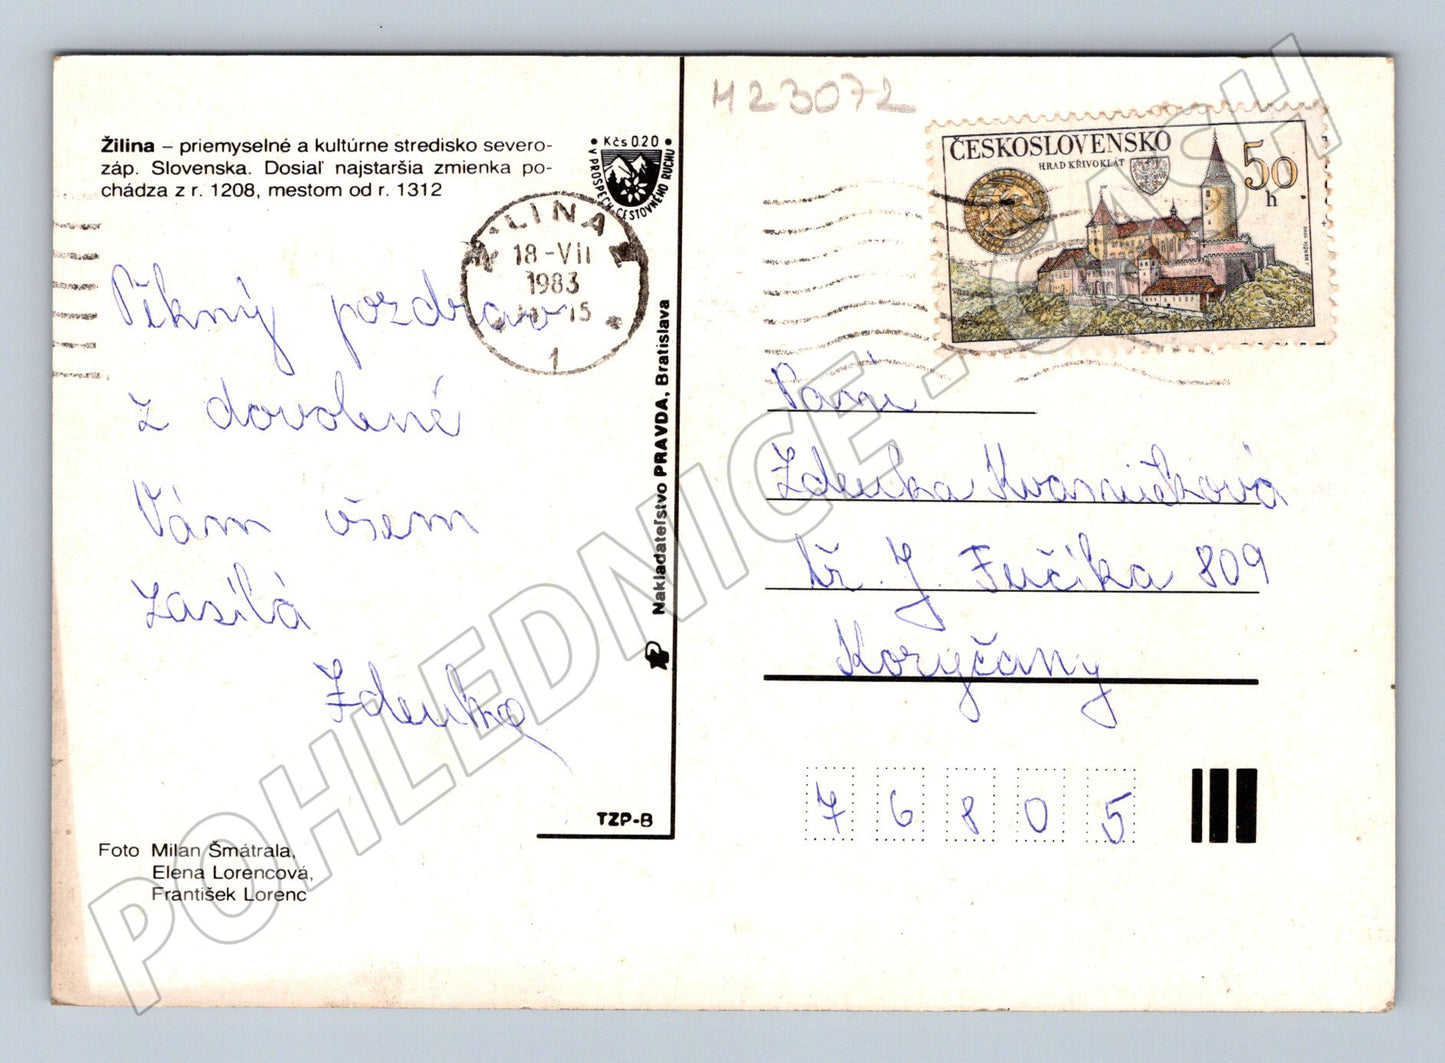 Žilina – priemyselné a kultúrne stredisko severo-
záp. Slovenska. Dosiaľ najstaršia zmienka po-
chádza z r. 1208, mestom od r. 1312
Kčs 0.20
V PROSPECH CESTOVNÉHO RUCHU
ŽILINA
18-VII
1983
15
1
Pěkný pozdrav
z dovolené
Vám všem
zasílá
Zdenka
Foto Milan Šmátrala,
Elena Lorencová,
František Lorenc
TZP-8
Nakladateľstvo PRAVDA, Bratislava
H23072
ČESKOSLOVENSKO
HRAD KŘIVOKLÁT
50
h
Paní
Zdenka Kvasničková
tř. J. Fučíka 809
Koryčany
76805
POHLEDNICE - CASH